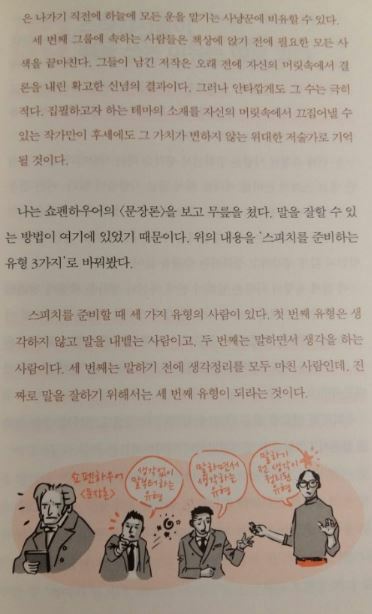 은 나가기 직전에 하늘에 모든 운을 맡기는 사냥꾼에 비유할 수 있다.
세 번째 그룹에 속하는 사람들은 책상에 앉기 전에 필요한 모든 사
색을 끝마친다. 그들이 남긴 저작은 오래 전에 자신의 머릿속에서 결
론을 내린 확고한 신념의 결과이다. 그러나 안타깝게도 그 수는 극히
적다. 집필하고자 하는 테마의 소재를 자신의 머릿속에서 끄집어낼 수
있는 작가만이 후세에도 그 가치가 변하지 않는 위대한 저술가로 기억
될 것이다.
나는 쇼펜하우어의 〈문장론〉을 보고 무릎을 쳤다. 말을 잘할 수 있
는 방법이 여기에 있었기 때문이다. 위의 내용을 ‘스피치를 준비하는
유형 3가지’로 바꿔봤다.
스피치를 준비할 때 세 가지 유형의 사람이 있다. 첫 번째 유형은 생
각하지 않고 말을 내뱉는 사람이고, 두 번째는 말하면서 생각을 하는
사람이다. 세 번째는 말하기 전에 생각정리를 모두 마친 사람인데, 진
짜로 말을 잘하기 위해서는 세 번째 유형이 되라는 것이다.
쇼펜하우어
〈문장론〉
생각없이
말부터하는
유형
말하면서
생각하는
유형
말하기
전 생각이
정리된
유형